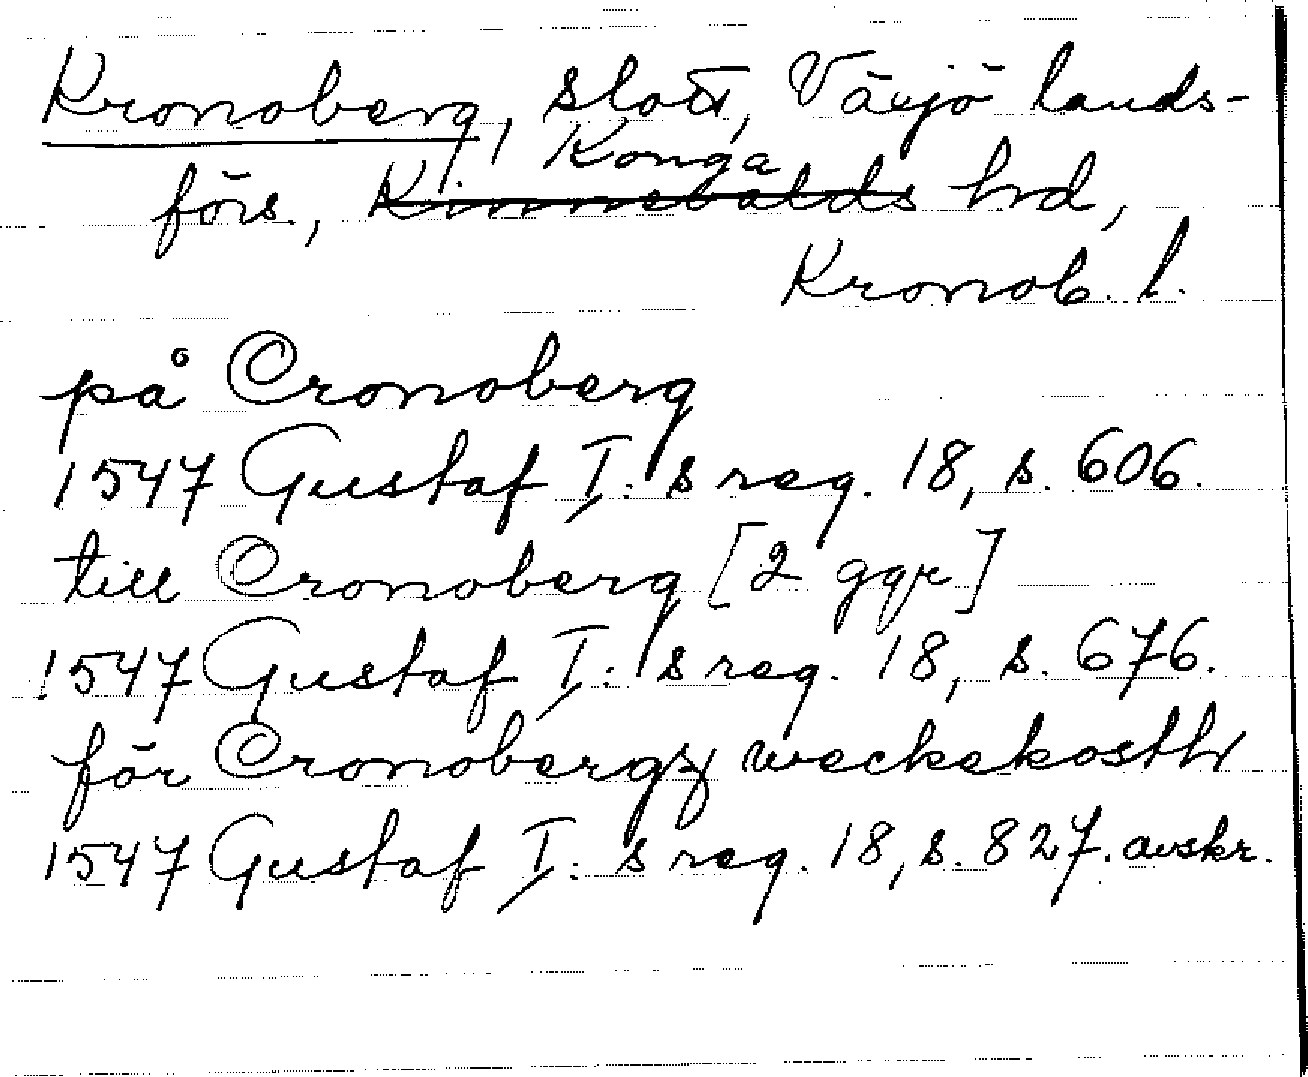 Kronoberg, slott, Växjö lands-
Konga
förs., Kinnevalds hrd,
Kronob. l.
på Cronoberg
1547 Gustaf I:s reg. 18, s. 606.
till Cronoberg [2 ggr]
1547 Gustaf I:s reg. 18, s. 676.
för Cronobergz weckekosth
1547 Gustaf I:s reg. 18, s. 827. avskr.